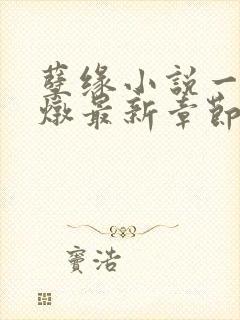 孽缘小說一
燉最新章節
竇浩